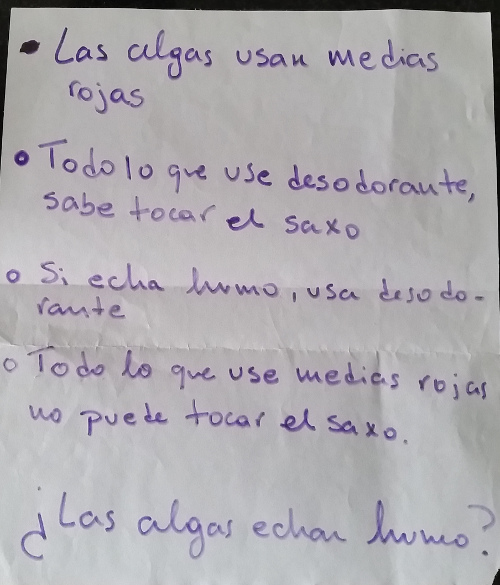 • Las algas usan medias
rojas
• Todo lo que use desodorante,
sabe tocar el saxo
• Si echa humo, usa desodo-
rante
• Todo lo que use medias rojas
no puede tocar el saxo.
¿Las algas echan humo?